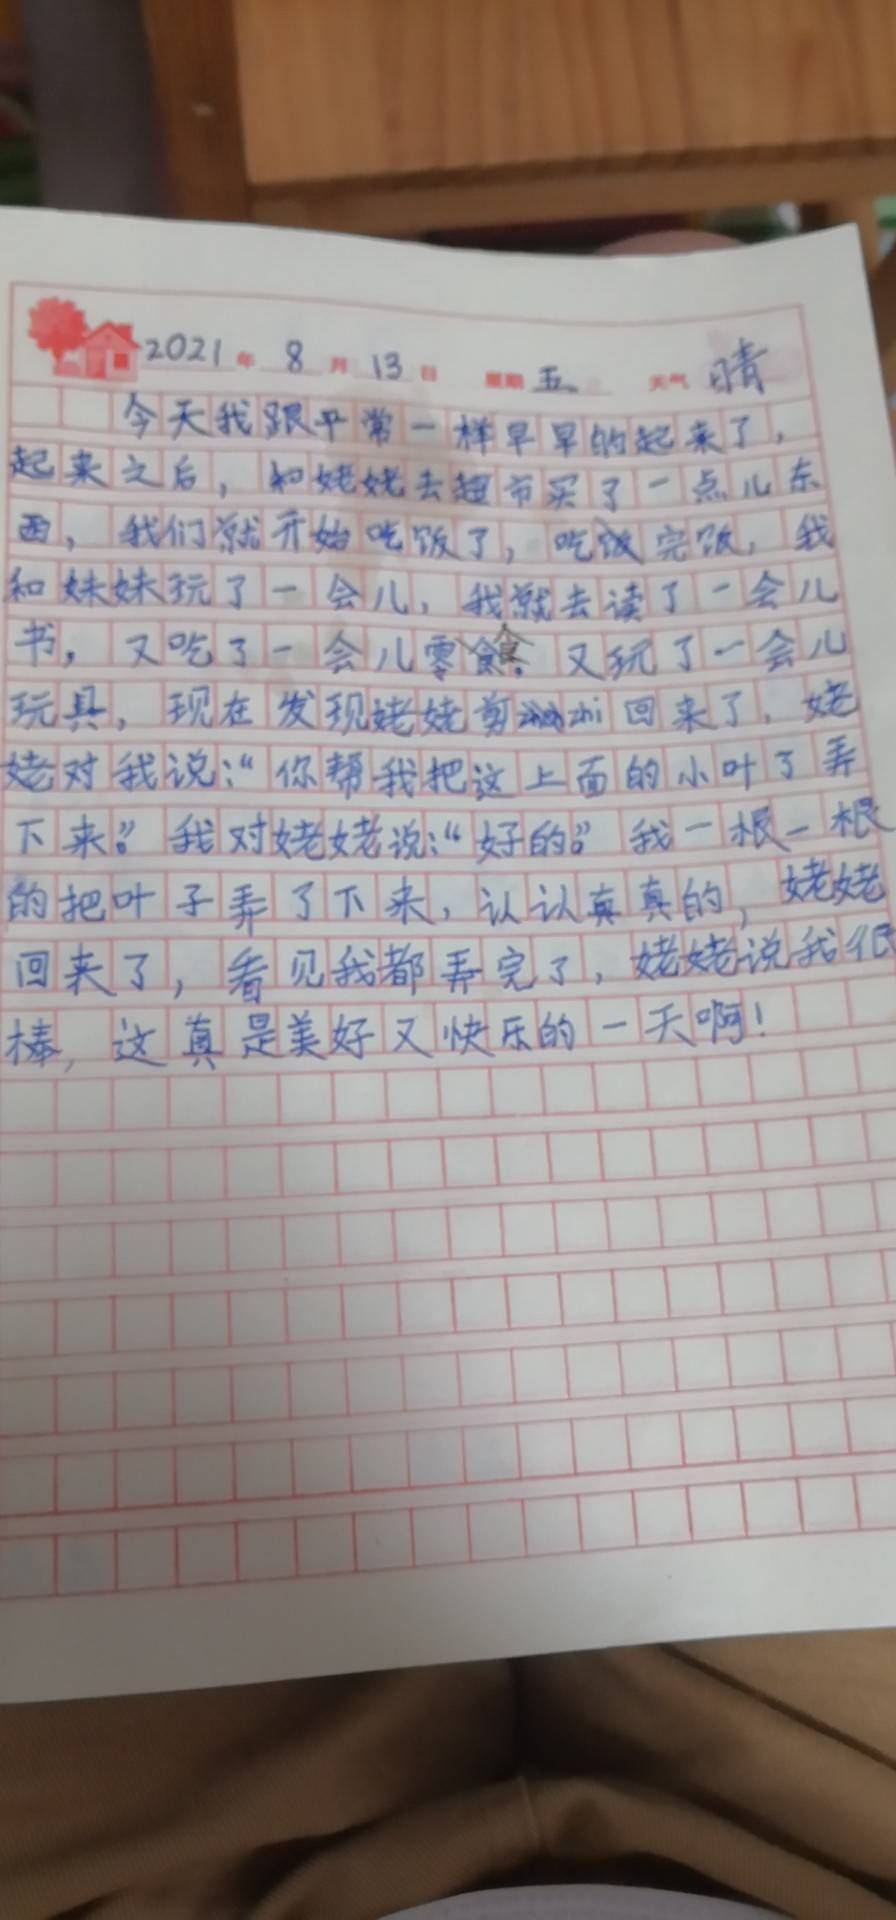 2021年 8月 13日 星期 五 天气 晴
今天我跟平常一样早早的起来了，
起来之后，和姥姥去超市买了一点儿东
西，我们就开始吃饭了，吃饭完饭，我
和妹妹玩了一会儿，我就去读了一会儿
书，又吃了一会儿零食。又玩了一会儿
玩具，现在发现姥姥剪zhi回来了，姥
姥对我说：“你帮我把这上面的小叶了弄
下来。”我对姥姥说：“好的。”我一根一根
的把叶子弄了下来，认认真真的，姥姥
回来了，看见我都弄完了，姥姥说我很
棒，这真是美好又快乐的一天啊！